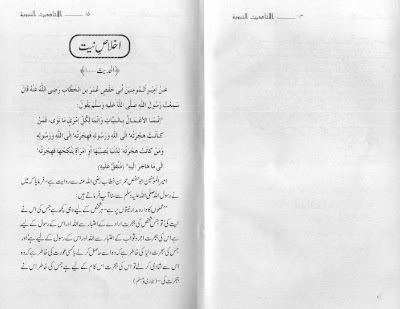 ۱۵ الأحاديث النبوية
اخلاصِ نیت
﴿الحديث ...۱﴾
عَنْ اَمِيْرِ الْمُؤْمِنِيْنَ اَبِي حَفْصٍ عُمَرَ بْنِ الْخَطَّابِ رَضِىَ اللّٰهُ عَنْهُ قَالَ
سَمِعْتُ رَسُوْلَ اللّٰهِ صَلَّى اللّٰهُ عَلَيْهِ وَسَلَّمَ يَقُوْلُ:
"اِنَّمَا الْاَعْمَالُ بِالنِّيَّاتِ وَاِنَّمَا لِكُلِّ امْرِئٍ مَا نَوٰى، فَمَنْ
كَانَتْ هِجْرَتُهُ اِلَى اللّٰهِ وَرَسُوْلِهِ فَهِجْرَتُهُ اِلَى اللّٰهِ وَرَسُوْلِهِ
وَمَنْ كَانَتْ هِجْرَتُهُ لِدُنْيَا يُصِيْبُهَا اَوِ امْرَاَةٍ يَنْكِحُهَا فَهِجْرَتُهُ
اِلٰى مَا هَاجَرَ اِلَيْهِ" (مُتَّفَقٌ عَلَيْهِ)
امیر المؤمنین ابو حفص عمر بن خطاب رضی اللہ عنہ سے روایت ہے۔ فرمایا کہ میں
نے رسول اللہ صلی اللہ علیہ وسلم سے سنا آپ فرماتے تھے:
"عملوں کا دارومدار نیتوں پر ہے۔ ہر شخص کے لیے وہی کچھ ہے جس کی اس نے
نیت کی تو جس شخص کی ہجرت ارادے کے اعتبار سے اللہ اور اس کے رسول کے لیے
ہے اس کی ہجرت اجر و ثواب کے اعتبار سے اللہ اور اس کے رسول کے لیے ہے اور
جس کی ہجرت دنیا کی خاطر ہے کہ وہ اسے حاصل کرلے یا کسی عورت کی خاطر ہے کہ وہ
اس سے شادی کرلے تو اس کی ہجرت اس کام کے لیے ہے جس کی خاطر اس نے
ہجرت کی۔" (بخاری و مسلم)
الأحاديث النبوية